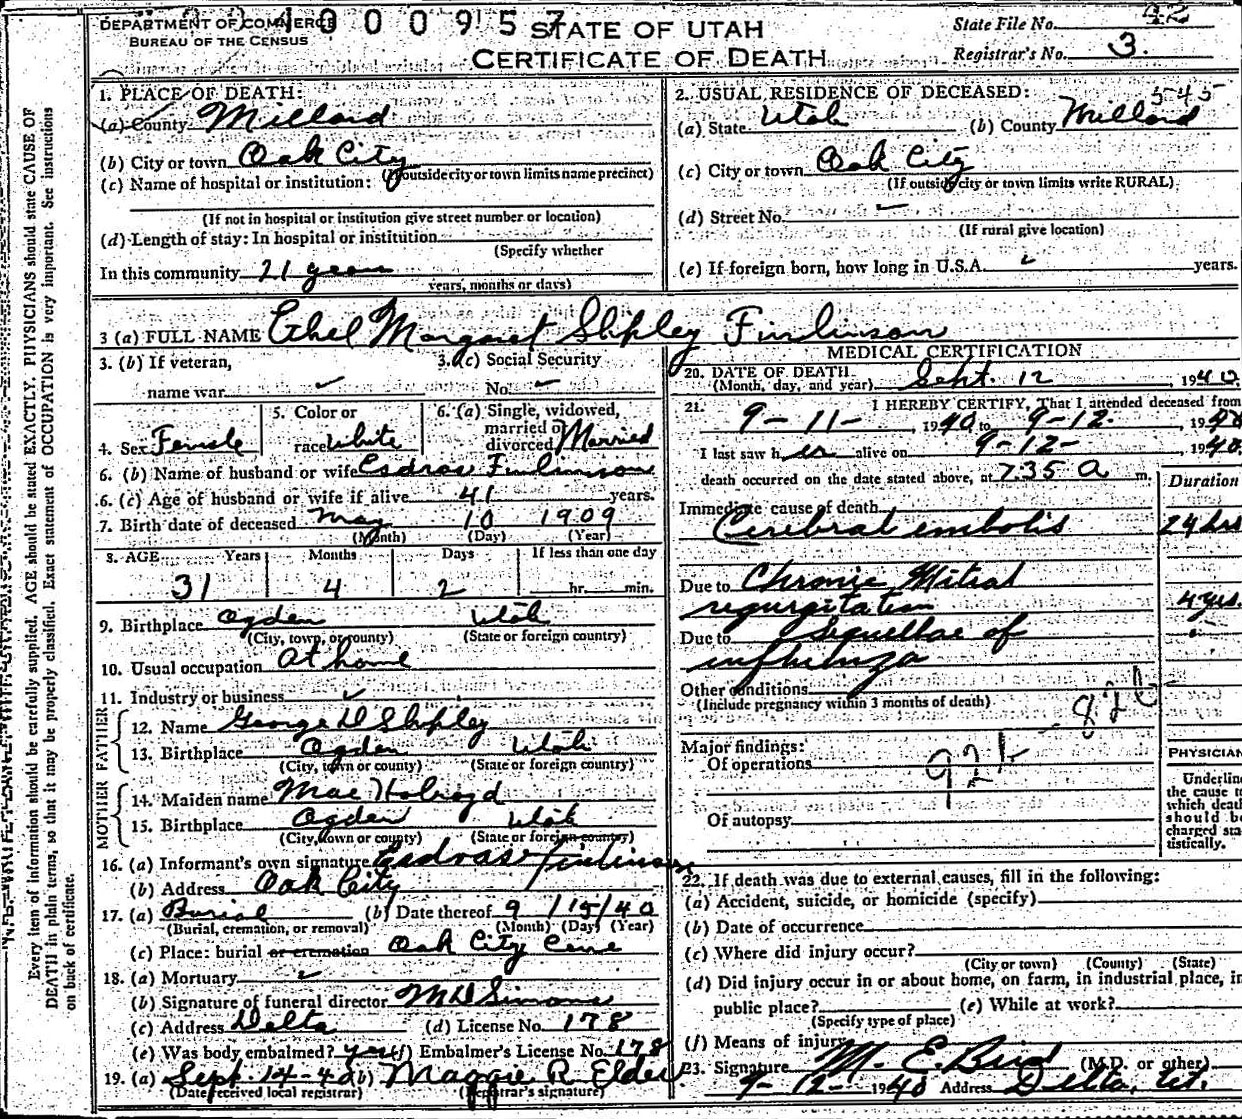 DEPARTMENT OF COMMERCE
BUREAU OF THE CENSUS
4 0 0 0 9 5 7
STATE OF UTAH
CERTIFICATE OF DEATH
State File No. 42
Registrar's No. 3.
Every item of information should be carefully supplied. AGE should be stated EXACTLY. PHYSICIANS should state CAUSE OF
DEATH in plain terms, so that it may be properly classified. Exact statement of OCCUPATION is very important. See instructions
on back of certificate.
1. PLACE OF DEATH:
(a) County Millard
(b) City or town Oak City
(If outside city or town limits name precinct)
(c) Name of hospital or institution:
(If not in hospital or institution give street number or location)
(d) Length of stay: In hospital or institution
(Specify whether
In this community 21 years
years, months or days)
2. USUAL RESIDENCE OF DECEASED: 545
(a) State Utah (b) County Millard
(c) City or town Oak City
(If outside city or town limits write RURAL)
(d) Street No.
(If rural give location)
(e) If foreign born, how long in U.S.A. years.
3 (a) FULL NAME Ethel Margaret Shipley Finlinson
3. (b) If veteran,
name war
3. (c) Social Security
No.
4. Sex Female
5. Color or
race White
6. (a) Single, widowed,
married or
divorced Married
6. (b) Name of husband or wife Esdras Finlinson
6. (c) Age of husband or wife if alive 41 years.
7. Birth date of deceased May 10 1909
(Month) (Day) (Year)
8. AGE Years Months Days If less than one day
31 4 2 hr. min.
9. Birthplace Ogden Utah
(City, town, or county) (State or foreign country)
10. Usual occupation at home
11. Industry or business
FATHER
12. Name George D Shipley
13. Birthplace Ogden Utah
(City, town or county) (State or foreign country)
MOTHER
14. Maiden name Mae Holroyd
15. Birthplace Ogden Utah
(City, town or county) (State or foreign country)
16. (a) Informant's own signature Esdras Finlinson
(b) Address Oak City
17. (a) Burial (b) Date thereof 9 / 15 / 40
(Burial, cremation, or removal) (Month) (Day) (Year)
(c) Place: burial or cremation Oak City Cem
18. (a) Mortuary
(b) Signature of funeral director M D Simons
(c) Address Delta (d) License No. 178
(e) Was body embalmed? yes (f) Embalmer's License No. 178
19. (a) Sept. 14-40 (b) Maggie R. Elder
(Date received local registrar) (Registrar's signature)
MEDICAL CERTIFICATION
20. DATE OF DEATH
(Month, day, and year) Sept. 12, 1940.
21. I HEREBY CERTIFY, That I attended deceased from
9-11-, 1940 to 9-12-, 1940
I last saw her alive on 9-12-, 1940.
death occurred on the date stated above, at 7:35 a m.
Duration
Immediate cause of death
Cerebral embolis 24 hrs
Due to Chronic Mitral
regurgitation 4 yrs.
Due to Sequellae of
influenza
Other conditions
(Include pregnancy within 3 months of death)
Major findings:
Of operations
Of autopsy
PHYSICIAN
Underline
the cause to
which death
should be
charged sta-
tistically.
22. If death was due to external causes, fill in the following:
(a) Accident, suicide, or homicide (specify)
(b) Date of occurrence
(c) Where did injury occur?
(City or town) (County) (State)
(d) Did injury occur in or about home, on farm, in industrial place, in
public place? (e) While at work?
(Specify type of place)
(f) Means of injury
23. Signature M. E. Bird (M.D. or other)
9-12-1940 Address Delta, Ut.